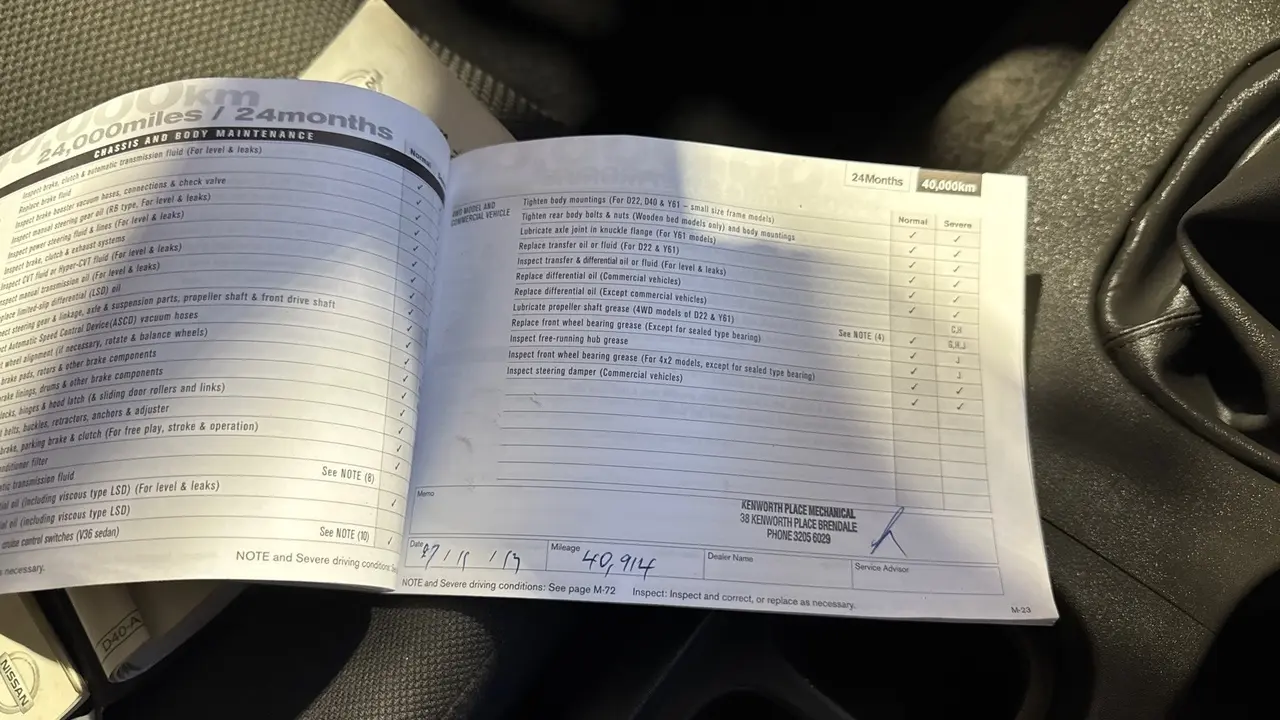 000km
24,000miles / 24months
CHASSIS AND BODY MAINTENANCE
Normal
Inspect brake, clutch & automatic transmission fluid (For level & leaks)
Replace brake fluid
Inspect brake booster vacuum hoses, connections & check valve
Inspect manual steering gear oil (RB type, For level & leaks)
Inspect power steering fluid & lines (For level & leaks)
Inspect brake, clutch & exhaust systems
Inspect CVT fluid or Hyper-CVT fluid (For level & leaks)
Inspect manual transmission oil (For level & leaks)
place limited-slip differential (LSD) oil
ect steering gear & linkage, axle & suspension parts, propeller shaft & front drive shaft
t Automatic Speed Control Device(ASCD) vacuum hoses
wheel alignment (if necessary, rotate & balance wheels)
brake pads, rotors & other brake components
brake linings, drums & other brake components
locks, hinges & hood latch (& sliding door rollers and links)
belts, buckles, retractors, anchors & adjuster
brake, parking brake & clutch (For free play, stroke & operation)
nditioner filter
tic transmission fluid See NOTE (8)
tial oil (including viscous type LSD) (For level & leaks)
ial oil (including viscous type LSD)
cruise control switches (V36 sedan) See NOTE (10)
NOTE and Severe driving conditions
s necessary.
24Months 40,000km
Normal Severe
4WD MODEL AND
COMMERCIAL VEHICLE
Tighten body mountings (For D22, D40 & Y61 – small size frame models)
Tighten rear body bolts & nuts (Wooden bed models only) and body mountings
Lubricate axle joint in knuckle flange (For Y61 models)
Replace transfer oil or fluid (For D22 & Y61)
Inspect transfer & differential oil or fluid (For level & leaks)
Replace differential oil (Commercial vehicles)
Replace differential oil (Except commercial vehicles)
Lubricate propeller shaft grease (4WD models of D22 & Y61) C,H
Replace front wheel bearing grease (Except for sealed type bearing) See NOTE (4) G,H,J
Inspect free-running hub grease J
Inspect front wheel bearing grease (For 4x2 models, except for sealed type bearing) J
Inspect steering damper (Commercial vehicles)
Memo
KENWORTH PLACE MECHANICAL
38 KENWORTH PLACE BRENDALE
PHONE 3205 6029
Date
Mileage 40,914
Dealer Name
Service Advisor
NOTE and Severe driving conditions: See page M-72 Inspect: Inspect and correct, or replace as necessary.
M-23
D40-A
NISSAN